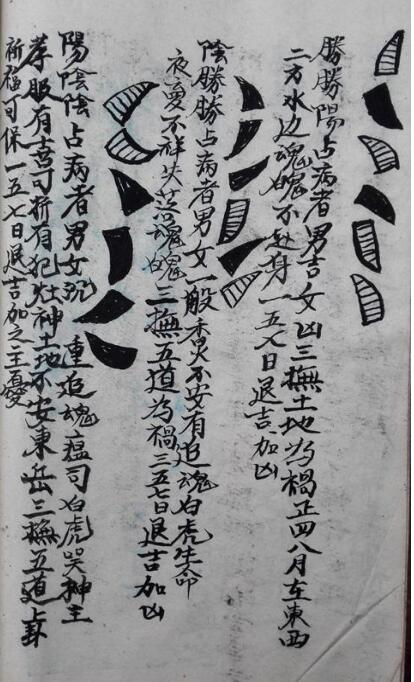 勝勝陽占病者男吉女凶三撫土地为禍正四八月在東西
二方水边魂魄不赴身一五七日退吉加凶
陰勝勝占病者男女一般香火不安有追魂白虎生命
夜夢不祥失落魂魄三撫五道為禍三五七日退吉加凶
陽陰陰占病者男女沉重追魂瘟司白虎哭神主
孝服有喜可祈有犯灶神土地不安東岳三撫五道上卦
祈福可保一五七日退吉加之主憂